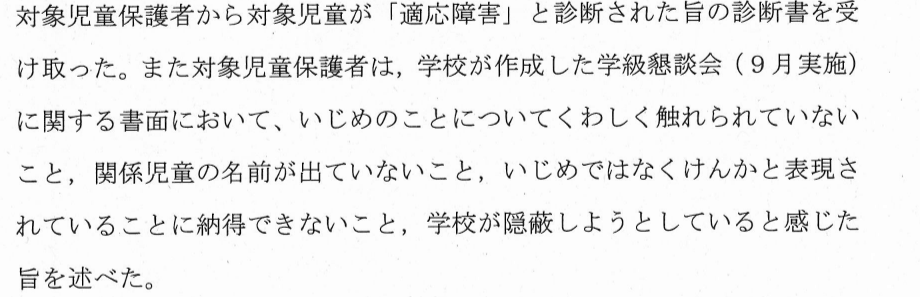 対象児童保護者から対象児童が「適応障害」と診断された旨の診断書を受
け取った。また対象児童保護者は，学校が作成した学級懇談会（９月実施）
に関する書面において、いじめのことについてくわしく触れられていない
こと，関係児童の名前が出ていないこと，いじめではなくけんかと表現さ
れていることに納得できないこと，学校が隠蔽しようとしていると感じた
旨を述べた。